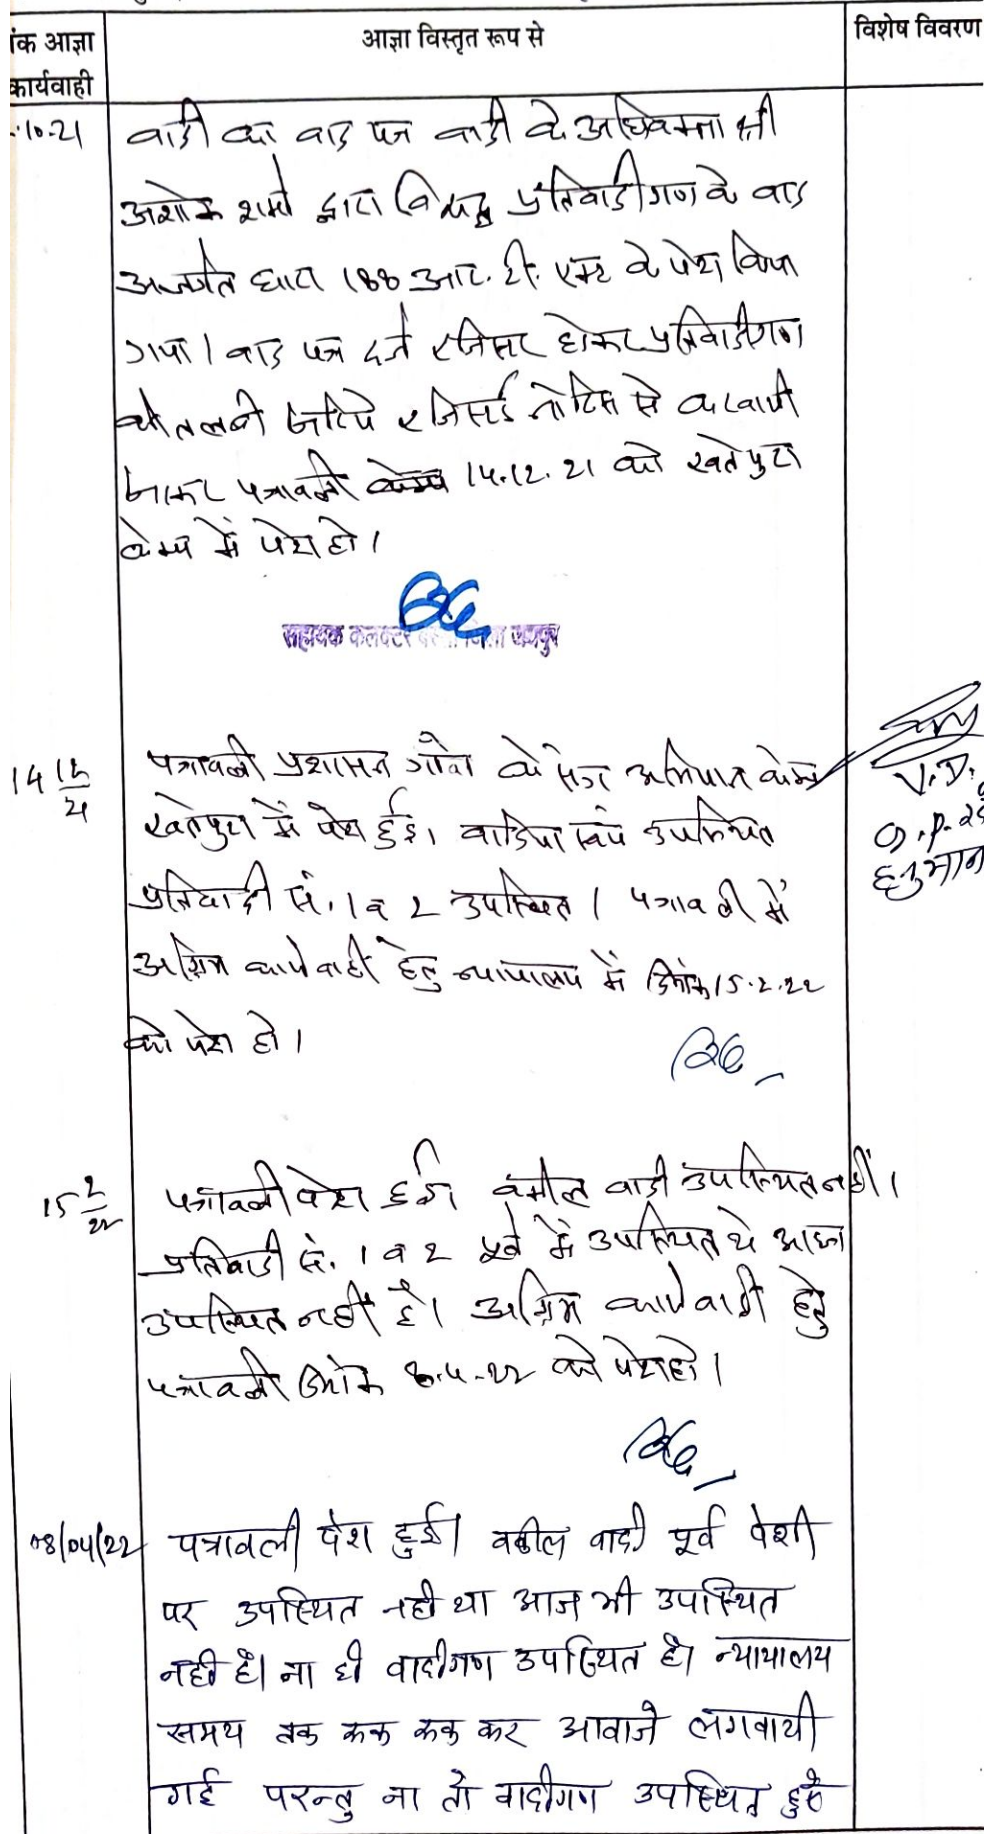 ंक आज्ञा
कार्यवाही
आज्ञा विस्तृत रूप से
विशेष विवरण
.10.21
वादी का वाद पत्र वादी के अधिवक्ता श्री
अशोक शर्मा द्वारा विरुद्ध प्रतिवादीगण के वाद
अन्तर्गत धारा 188 आर. टी. एक्ट के पेश किया
गया। वाद पत्र दर्ज रजिस्टर होकर प्रतिवादीगण
को तलबी जरिये रजिस्टर्ड नोटिस से करवायी
जाकर पत्रावली 14.12.21 को खतेपुरा
केम्प में पेश हो।
सहायक कलक्टर
14 12/21
पत्रावली प्रशासन गाँवो के संग अभियान केम्प
खतेपुरा में पेश हुई। वादिया स्वयं उपस्थित
प्रतिवादी सं. 1 व 2 उपस्थित। पत्रावली में
अग्रिम कार्यवाही हेतु न्यायालय में दिनांक 15.2.22
को पेश हो।
V.D.
हनुमान
15 2/22
पत्रावली पेश हुई। वकील वादी उपस्थित नहीं।
प्रतिवादी सं. 1 व 2 पूर्व में उपस्थित थे आज
उपस्थित नहीं है। अग्रिम कार्यवाही हेतु
पत्रावली दिनांक 8.4.22 को पेश हो।
08/04/22
पत्रावली पेश हुई। वकील वादी पूर्व पेशी
पर उपस्थित नही था आज भी उपस्थित
नही है। ना ही वादीगण उपस्थित है। न्यायालय
समय तक रूक रूक कर आवाजे लगवायी
गई परन्तु ना तो वादीगण उपस्थित हुऐ